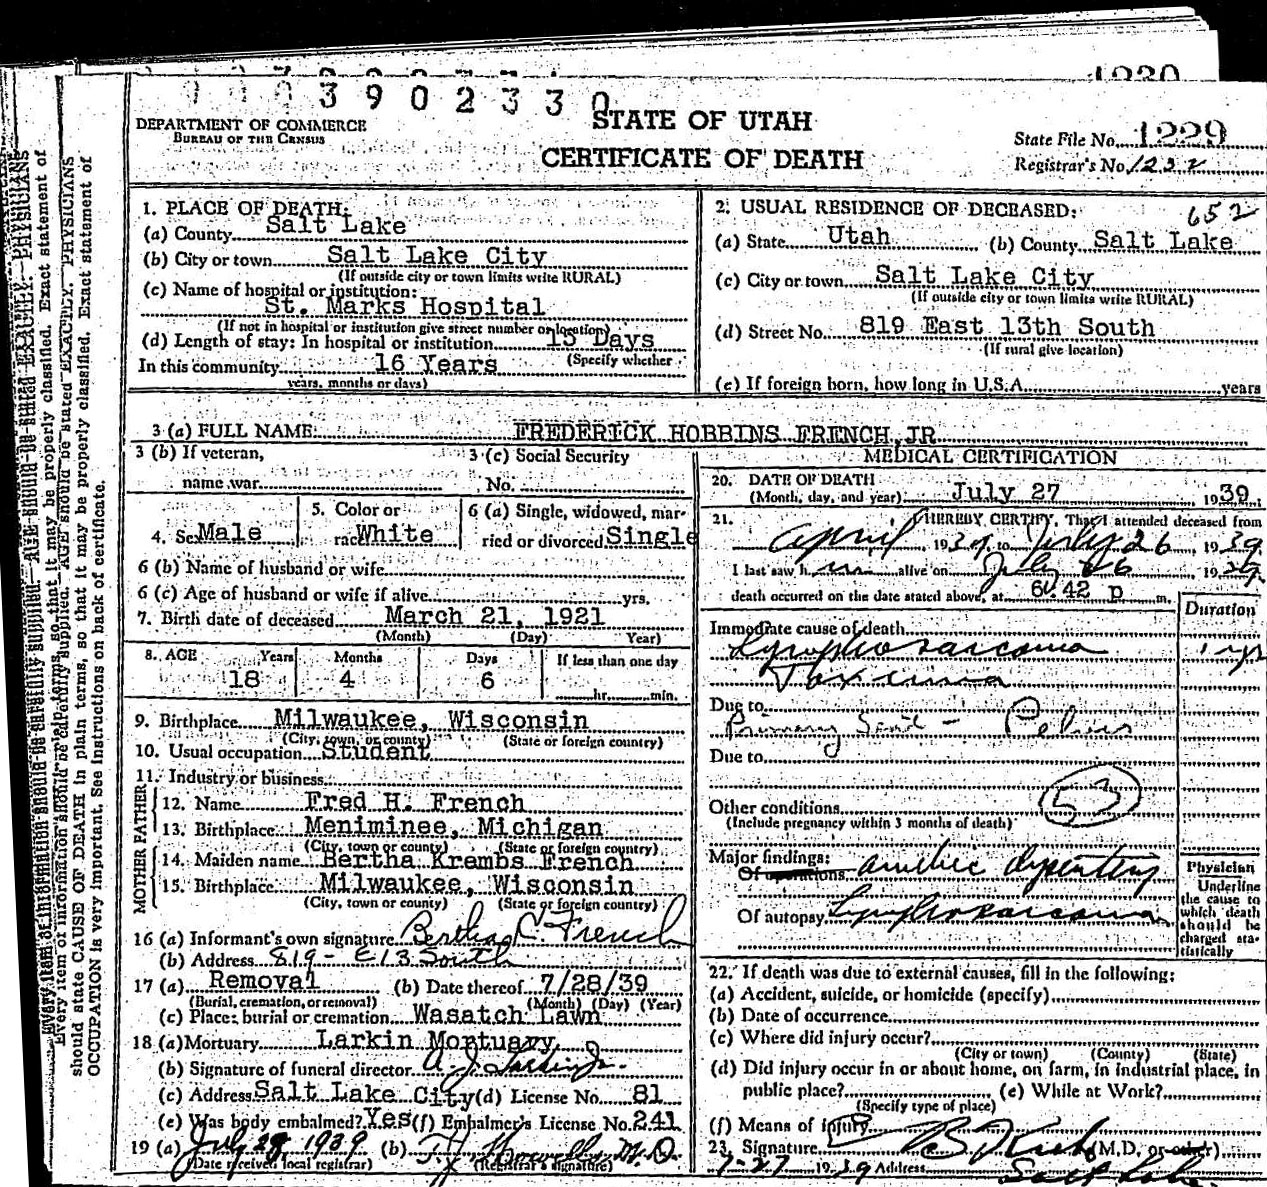 1230
3 9 0 2 3 3 0
STATE OF UTAH
DEPARTMENT OF COMMERCE
BUREAU OF THE CENSUS
CERTIFICATE OF DEATH
State File No. 1229
Registrar's No. 1232
1. PLACE OF DEATH:
(a) County Salt Lake
(b) City or town Salt Lake City
(If outside city or town limits write RURAL)
(c) Name of hospital or institution:
St. Marks Hospital
(If not in hospital or institution give street number or location)
(d) Length of stay: In hospital or institution 15 Days
In this community 16 Years (Specify whether
years, months or days)
2. USUAL RESIDENCE OF DECEASED: 652
(a) State Utah (b) County Salt Lake
(c) City or town Salt Lake City
(If outside city or town limits write RURAL)
(d) Street No. 819 East 13th South
(If rural give location)
(e) If foreign born, how long in U.S.A. years
3 (a) FULL NAME FREDERICK HOBBINS FRENCH, JR
3 (b) If veteran, name war
3 (c) Social Security No.
4. Sex Male
5. Color or race White
6 (a) Single, widowed, married or divorced Single
6 (b) Name of husband or wife
6 (c) Age of husband or wife if alive yrs.
7. Birth date of deceased March 21, 1921
(Month) (Day) (Year)
8. AGE Years Months Days If less than one day
18 4 6 hr. min.
9. Birthplace Milwaukee, Wisconsin
(City, town, or county) (State or foreign country)
10. Usual occupation Student
11. Industry or business
FATHER
12. Name Fred H. French
13. Birthplace Meniminee, Michigan
(City, town or county) (State or foreign country)
MOTHER
14. Maiden name Bertha Krembs French
15. Birthplace Milwaukee, Wisconsin
(City, town or county) (State or foreign country)
16 (a) Informant's own signature Bertha K. French
(b) Address 819 - E 13 South
17 (a) Removal (b) Date thereof 7/28/39
(Burial, cremation, or removal) (Month) (Day) (Year)
(c) Place: burial or cremation Wasatch Lawn
18 (a) Mortuary Larkin Mortuary
(b) Signature of funeral director A. J. Larkin Jr.
(c) Address Salt Lake City (d) License No. 81
(e) Was body embalmed? Yes (f) Embalmer's License No. 241
19 (a) July 28, 1939 (b) M.D.
(Date received local registrar) (Registrar's signature)
MEDICAL CERTIFICATION
20. DATE OF DEATH
(Month, day, and year) July 27 1939
21. I HEREBY CERTIFY, That I attended deceased from
April 1939, to July 26, 1939
I last saw him alive on July 26 1939
death occurred on the date stated above, at 6:42 p m.
Duration
Immediate cause of death
Lymphosarcoma 1 yr
Toxemia
Due to
Primary Seat - Pelvis
Due to
Other conditions 53
(Include pregnancy within 3 months of death)
Major findings:
Of operations amebic dysentery
Of autopsy Lymphosarcoma
Physician
Underline
the cause to
which death
should be
charged sta-
tistically
22. If death was due to external causes, fill in the following:
(a) Accident, suicide, or homicide (specify)
(b) Date of occurrence
(c) Where did injury occur?
(City or town) (County) (State)
(d) Did injury occur in or about home, on farm, in industrial place, in
public place? (e) While at Work?
(Specify type of place)
(f) Means of injury
23. Signature (M.D. or other)
7-27 1939 Address Salt Lake
Every item of information should be carefully supplied. AGE should be stated EXACTLY. PHYSICIANS
should state CAUSE OF DEATH in plain terms, so that it may be properly classified. Exact statement of
OCCUPATION is very important. See instructions on back of certificate.